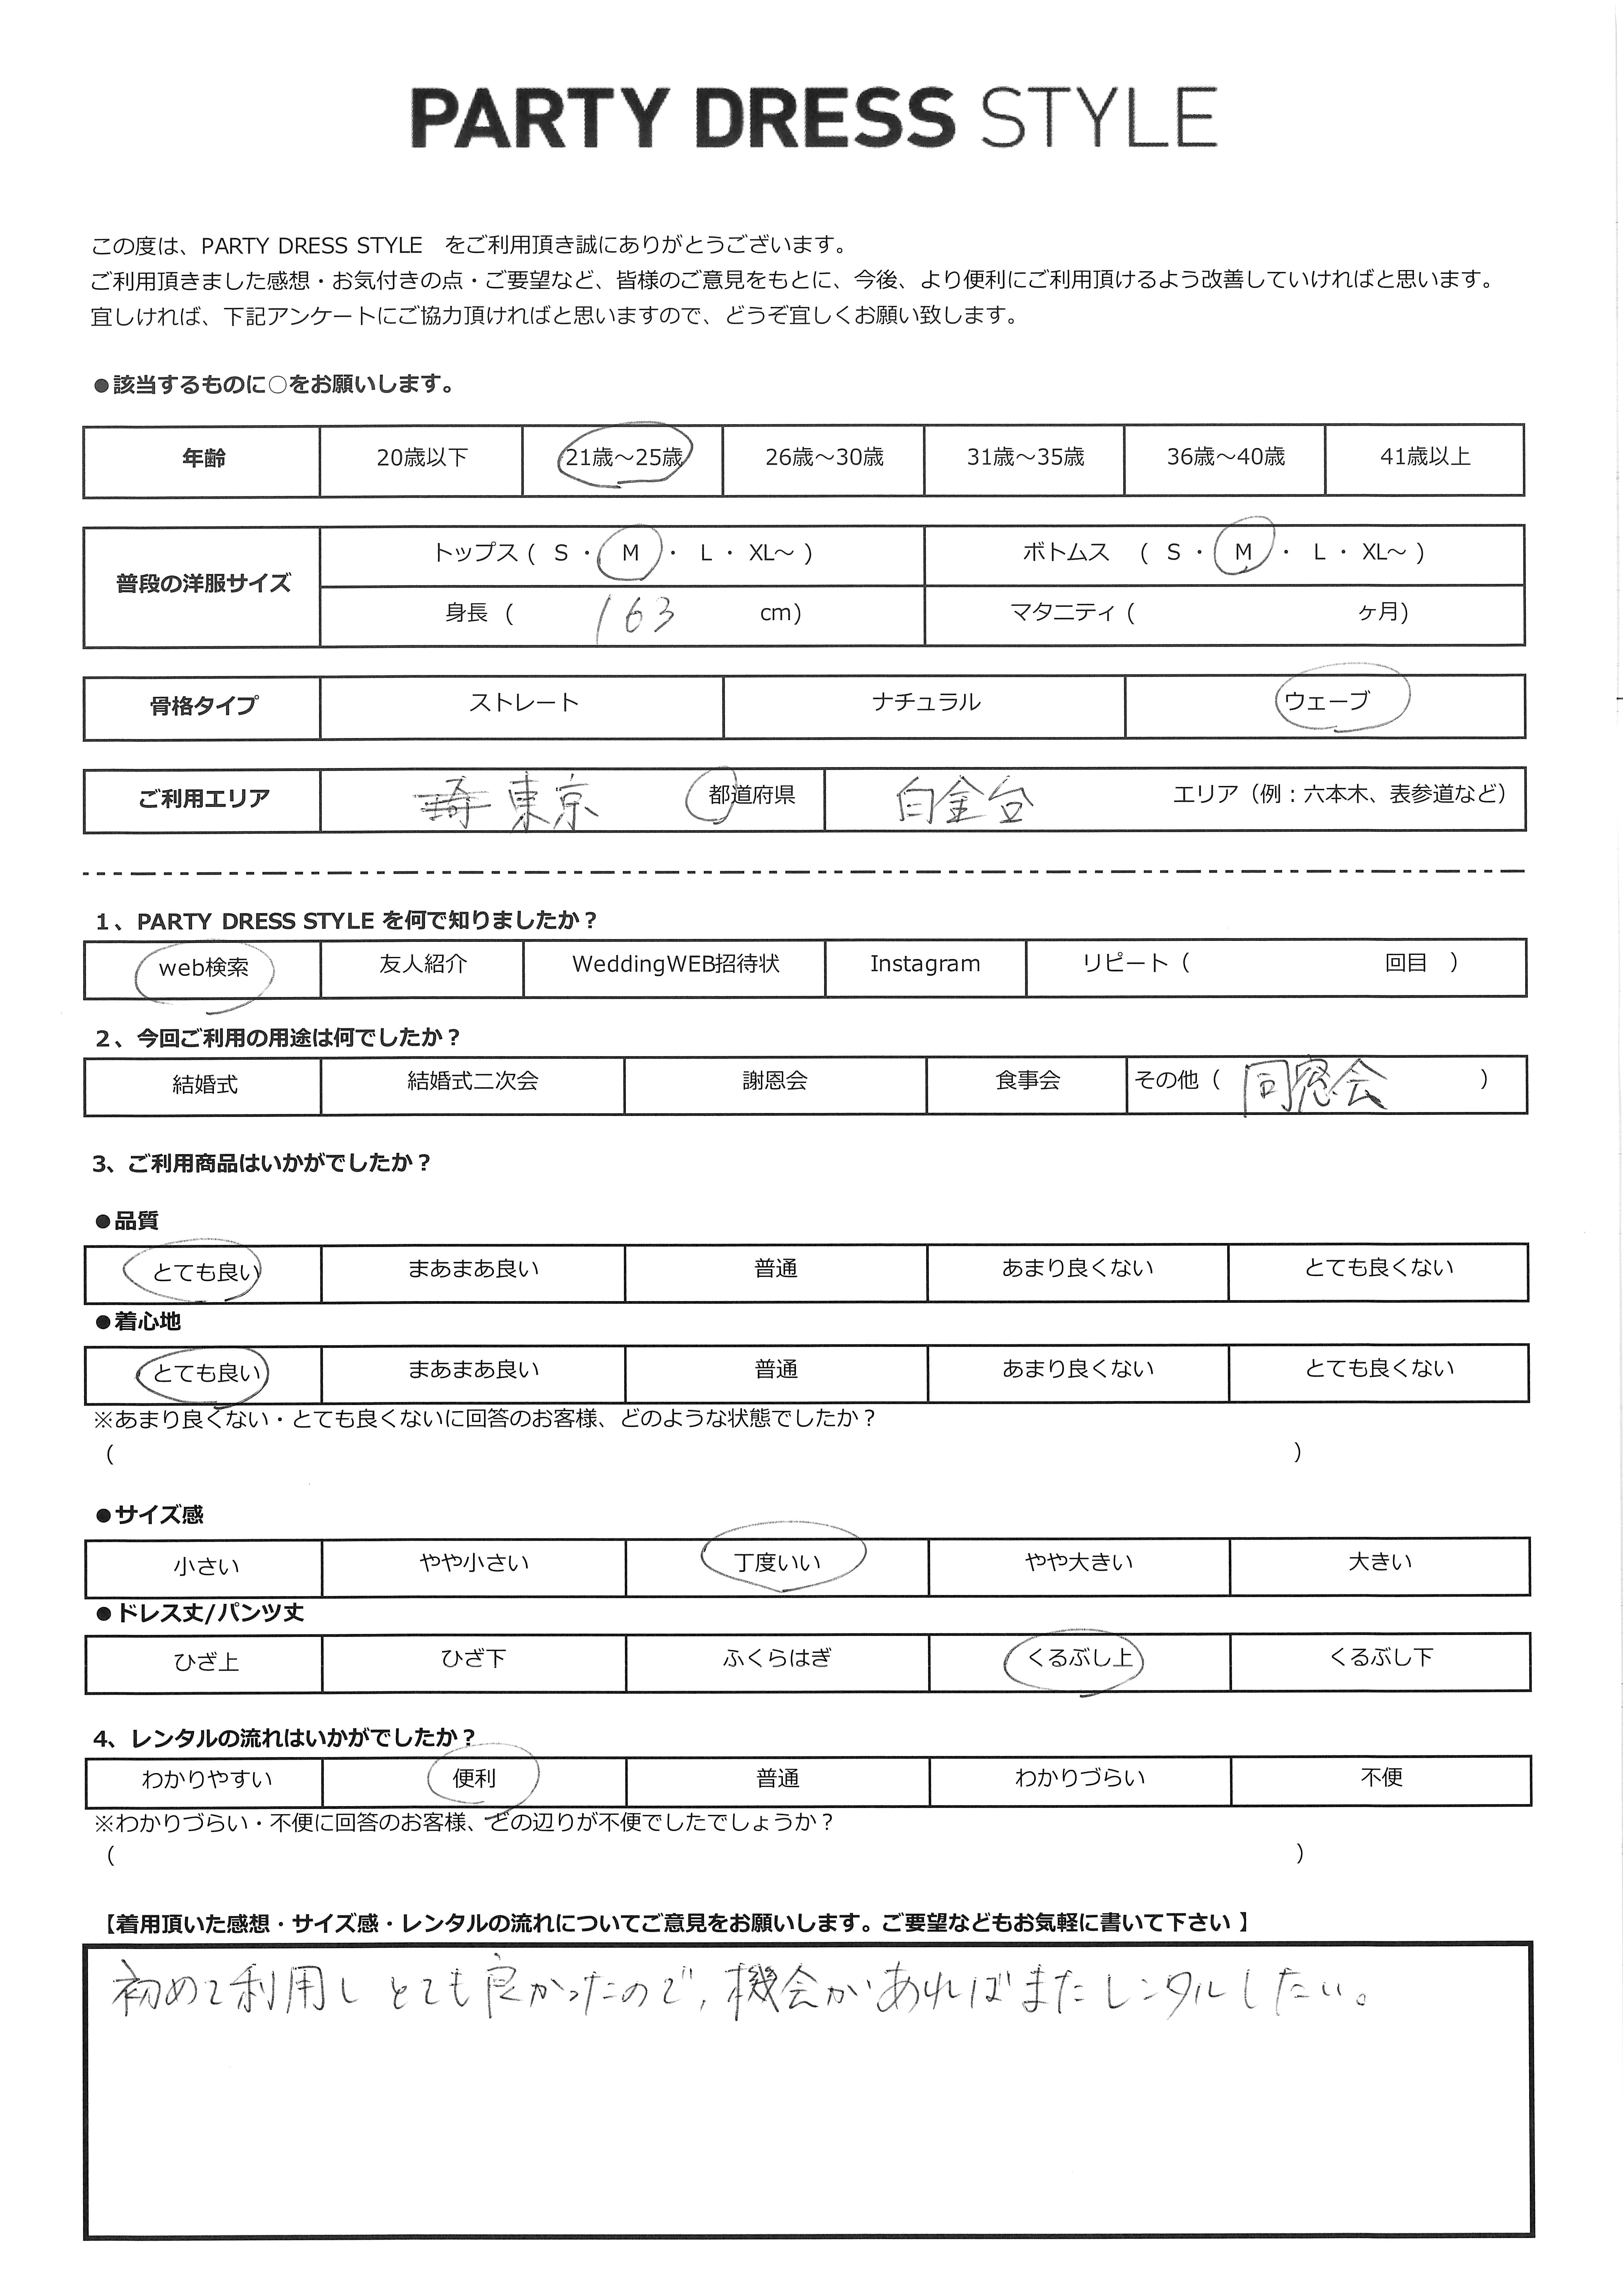 PARTY DRESS STYLE
この度は、PARTY DRESS STYLE をご利用頂き誠にありがとうございます。
ご利用頂きました感想・お気付きの点・ご要望など、皆様のご意見をもとに、今後、より便利にご利用頂けるよう改善していければと思います。
宜しければ、下記アンケートにご協力頂ければと思いますので、どうぞ宜しくお願い致します。
●該当するものに○をお願いします。
年齢 20歳以下 21歳～25歳 26歳～30歳 31歳～35歳 36歳～40歳 41歳以上
普段の洋服サイズ トップス ( S ・ M ・ L ・ XL～ ) ボトムス ( S ・ M ・ L ・ XL～ )
身長 ( 163 cm) マタニティ ( ヶ月)
骨格タイプ ストレート ナチュラル ウェーブ
ご利用エリア 埼 東京 都道府県 白金台 エリア（例：六本木、表参道など）
1、PARTY DRESS STYLE を何で知りましたか？
web検索 友人紹介 WeddingWEB招待状 Instagram リピート（ 回目 ）
2、今回ご利用の用途は何でしたか？
結婚式 結婚式二次会 謝恩会 食事会 その他（ 同窓会 ）
3、ご利用商品はいかがでしたか？
●品質
とても良い まあまあ良い 普通 あまり良くない とても良くない
●着心地
とても良い まあまあ良い 普通 あまり良くない とても良くない
※あまり良くない・とても良くないに回答のお客様、どのような状態でしたか？
（ ）
●サイズ感
小さい やや小さい 丁度いい やや大きい 大きい
●ドレス丈/パンツ丈
ひざ上 ひざ下 ふくらはぎ くるぶし上 くるぶし下
4、レンタルの流れはいかがでしたか？
わかりやすい 便利 普通 わかりづらい 不便
※わかりづらい・不便に回答のお客様、どの辺りが不便でしたでしょうか？
（ ）
【着用頂いた感想・サイズ感・レンタルの流れについてご意見をお願いします。ご要望などもお気軽に書いて下さい 】
初めて利用しとても良かったので、機会があればまたレンタルしたい。